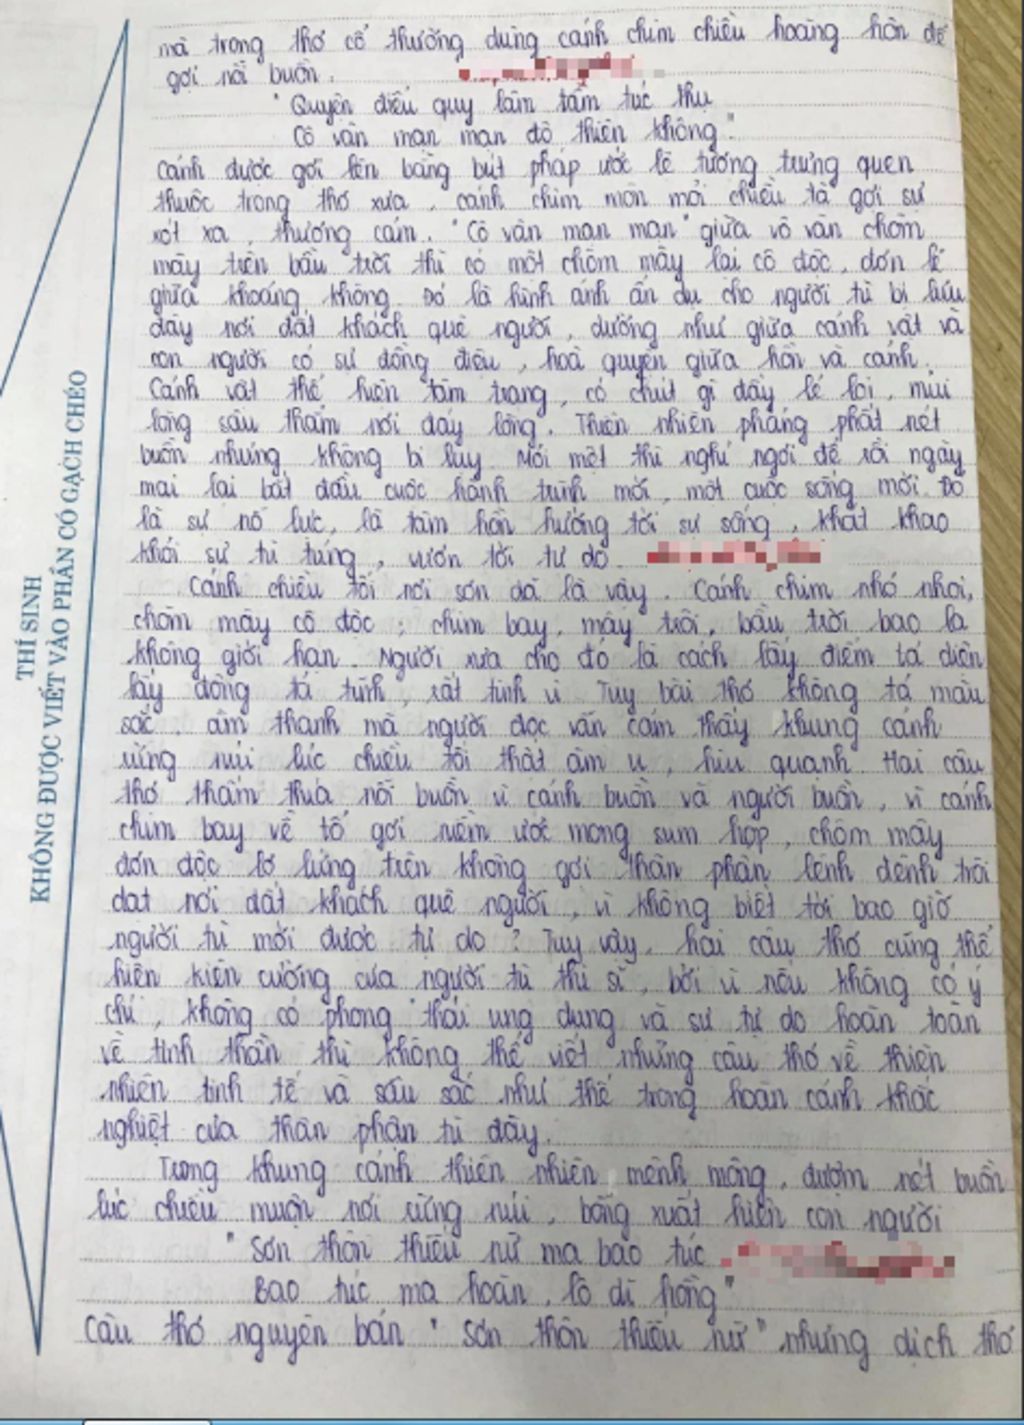 mà trong thơ cổ thường dùng cánh chim chiều hoàng hôn để
gợi nỗi buồn.
"Quyện điểu quy lâm tầm túc thụ
Cô vân mạn mạn độ thiên không"
Cảnh được gợi lên bằng bút pháp ước lệ tượng trưng quen
thuộc trong thơ xưa, cánh chim mòn mỏi chiều tà gợi sự
xót xa, thương cảm. "Cô vân mạn mạn" giữa vô vàn chòm
mây trên bầu trời thì có một chòm mây lại cô độc, đơn lẻ
giữa khoảng không. Đó là hình ảnh ẩn dụ cho người tù bị lưu
đày nơi đất khách quê người, dường như giữa cảnh vật và
con người có sự đồng điệu, hoà quyện giữa hồn và cảnh.
Cảnh vật thể hiện tâm trạng, có chút gì đấy lẻ loi, mủi
lòng sâu thẳm nơi đáy lòng. Thiên nhiên phảng phất nét
buồn nhưng không bi lụy. Mỏi mệt thì nghỉ ngơi để rồi ngày
mai lại bắt đầu cuộc hành trình mới, một cuộc sống mới. Đó
là sự nỗ lực, là tâm hồn hướng tới sự sống, khát khao
khỏi sự tù túng, vươn tới tự do.
Cảnh chiều tối nơi sơn dã là vậy. Cánh chim nhỏ nhoi,
chòm mây cô độc; chim bay, mây trôi, bầu trời bao la
không giới hạn. Người xưa cho đó là cách lấy điểm tả diện
lấy động tả tĩnh, rất tinh vi. Tuy bài thơ không tả màu
sắc, âm thanh mà người đọc vẫn cảm thấy khung cảnh
rừng núi lúc chiều tối thật âm u, hiu quạnh. Hai câu
thơ thấm thía nỗi buồn vì cảnh buồn và người buồn, vì cánh
chim bay về tổ gợi niềm ước mong sum họp, chòm mây
đơn độc lơ lửng trên không gợi thân phận lênh đênh trôi
dạt nơi đất khách quê người, vì không biết tới bao giờ
người tù mới được tự do? Tuy vậy, hai câu thơ cũng thể
hiện kiên cường của người tù thi sĩ, bởi vì nếu không có ý
chí, không có phong thái ung dung và sự tự do hoàn toàn
về tinh thần thì không thể viết những câu thơ về thiên
nhiên tinh tế và sâu sắc như thế trong hoàn cảnh khắc
nghiệt của thân phận tù đày.
Trong khung cảnh thiên nhiên mênh mông, đượm nét buồn
lúc chiều muộn nơi rừng núi, bỗng xuất hiện con người
"Sơn thôn thiếu nữ ma bao túc
Bao túc ma hoàn, lô dĩ hồng"
Câu thơ nguyên bản "Sơn thôn thiếu nữ" nhưng dịch thơ
THÍ SINH
KHÔNG ĐƯỢC VIẾT VÀO PHẦN CÓ GẠCH CHÉO